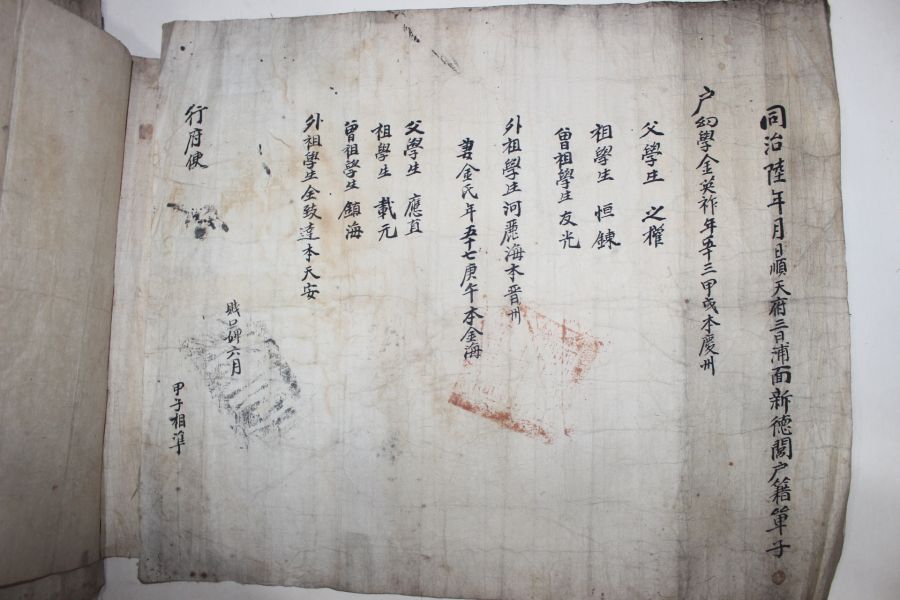 同治陸年月日順天府三日浦面新德閭户籍單子
户幼學金英祚年五十三甲戌本慶州
父學生 之權
祖學生 恒鍊
曾祖學生友光
外祖學生河麗海本晋州
妻金氏年五十七庚午本金海
父學生 應直
祖學生 載元
曾祖學生鎮海
外祖學生全致達本天安
行府使
口碑六月
甲子相準